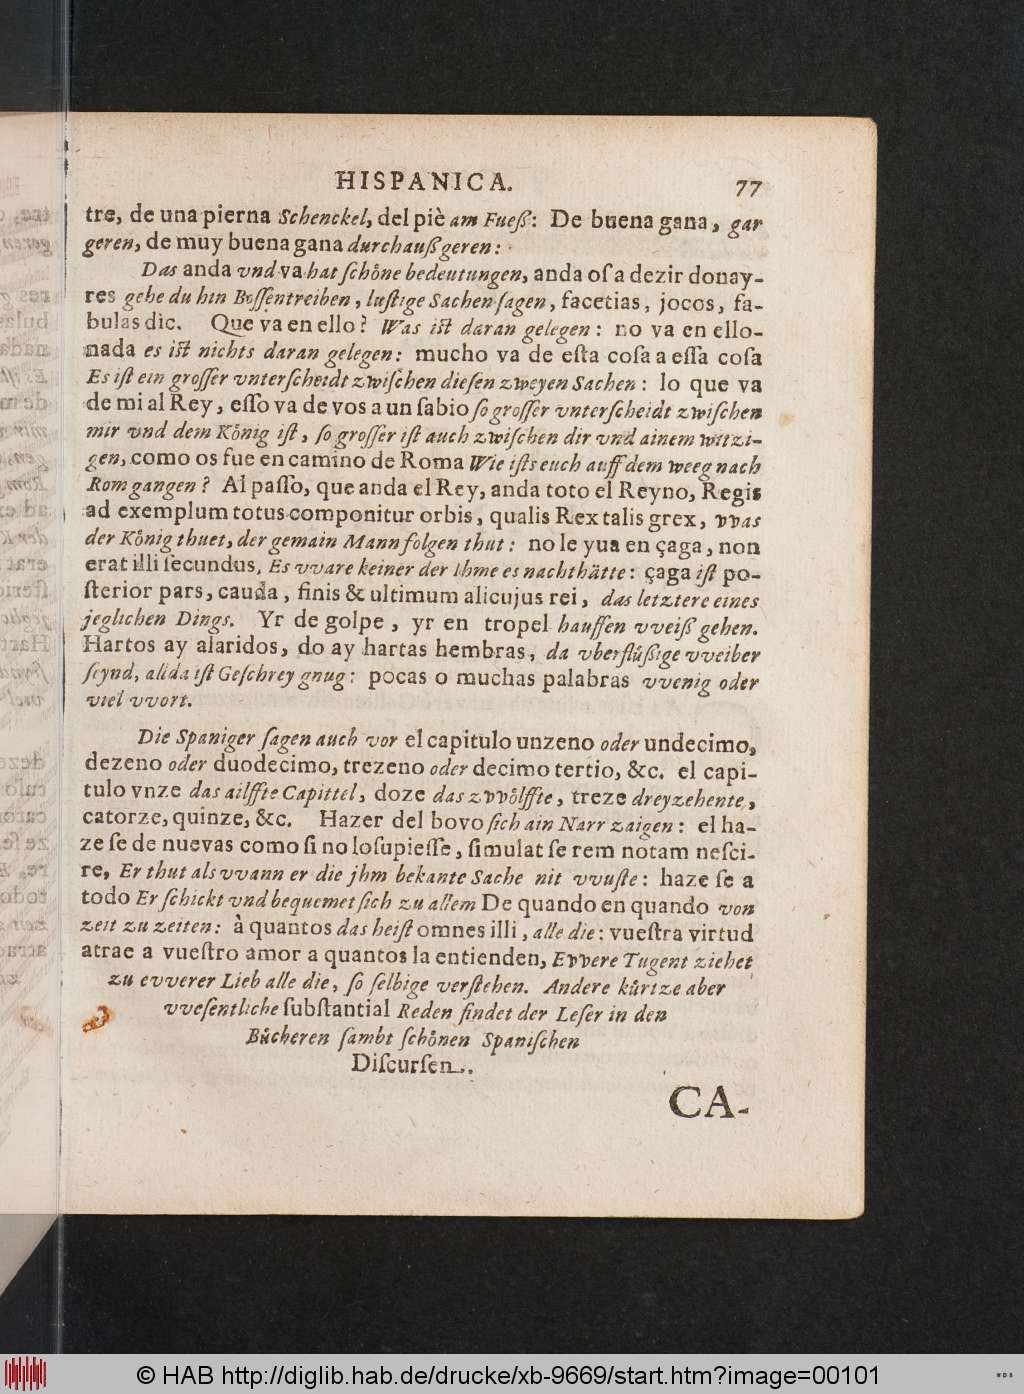 HISPANICA. 77
tre, de una pierna Schenckel, del piè am Fueß: De buena gana, gar
geren, de muy buena gana durchauß geren:
Das anda vnd va hat ſchöne bedeutungen, anda oſ a dezir donay-
res gehe du hin Boſſentreiben, luſtige Sachen ſagen, facetias, jocos, fa-
bulas dic. Que va en ello? Was iſt daran gelegen: no va en ello
nada es iſt nichts daran gelegen: mucho va de eſta coſa a eſſa coſa
Es iſt ein groſſer vnterſcheidt zwiſchen dieſen zweyen Sachen: lo que va
de mi al Rey, eſſo va de vos a un ſabio ſo groſſer vnterſcheidt zwiſchen
mir vnd dem König iſt, ſo groſſer iſt auch zwiſchen dir vnd ainem witzi-
gen, como os fue en camino de Roma Wie iſts euch auff dem weeg nach
Rom gangen? Al paſſo, que anda el Rey, anda toto el Reyno, Regis
ad exemplum totus componitur orbis, qualis Rex talis grex, vvas
der König thuet, der gemain Mann folgen thut: no le yua en çaga, non
erat illi ſecundus, Es vvare keiner der Ihme es nachthätte: çaga iſt po-
ſterior pars, cauda, finis & ultimum alicujus rei, das letztere eines
jeglichen Dings. Yr de golpe, yr en tropel hauffen vveiß gehen.
Hartos ay alaridos, do ay hartas hembras, da vberflüßige vveiber
ſeynd, allda iſt Geſchrey gnug: pocas o muchas palabras vvenig oder
viel vvort.
Die Spaniger ſagen auch vor el capitulo unzeno oder undecimo,
dezeno oder duodecimo, trezeno oder decimo tertio, &c. el capi-
tulo vnze das ailffte Capittel, doze das zvvölffte, treze dreyzehente,
catorze, quinze, &c. Hazer del bovo ſich ain Narr zaigen: el ha-
ze ſe de nuevas como ſi no loſupieſſe, ſimulat ſe rem notam neſci-
re, Er thut als vvann er die jhm bekante Sache nit vvuſte: haze ſe a
todo Er ſchickt vnd bequemet ſich zu allem De quando en quando von
zeit zu zeiten: à quantos das heiſt omnes illi, alle die: vueſtra virtud
atrae a vueſtro amor a quantos la entienden, Evvere Tugent ziehet
zu evverer Lieb alle die, ſo ſelbige verſtehen. Andere kürtze aber
vveſentliche ſubſtantial Reden findet der Leſer in den
Bücheren ſambt ſchönen Spaniſchen
Diſcurſen.
CA-
© HAB http://diglib.hab.de/drucke/xb-9669/start.htm?image=00101